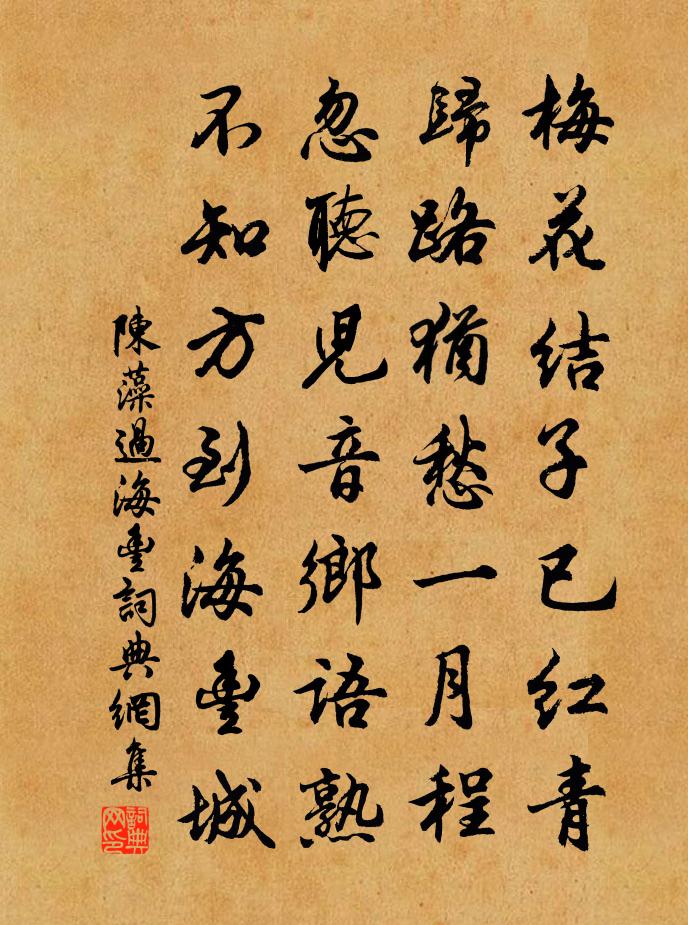 梅花結子已红青
歸路猶愁一月程
忽聽兒音鄉語熟
不知方到海豐城
陳藻過海豐詞典網集
詞典网印